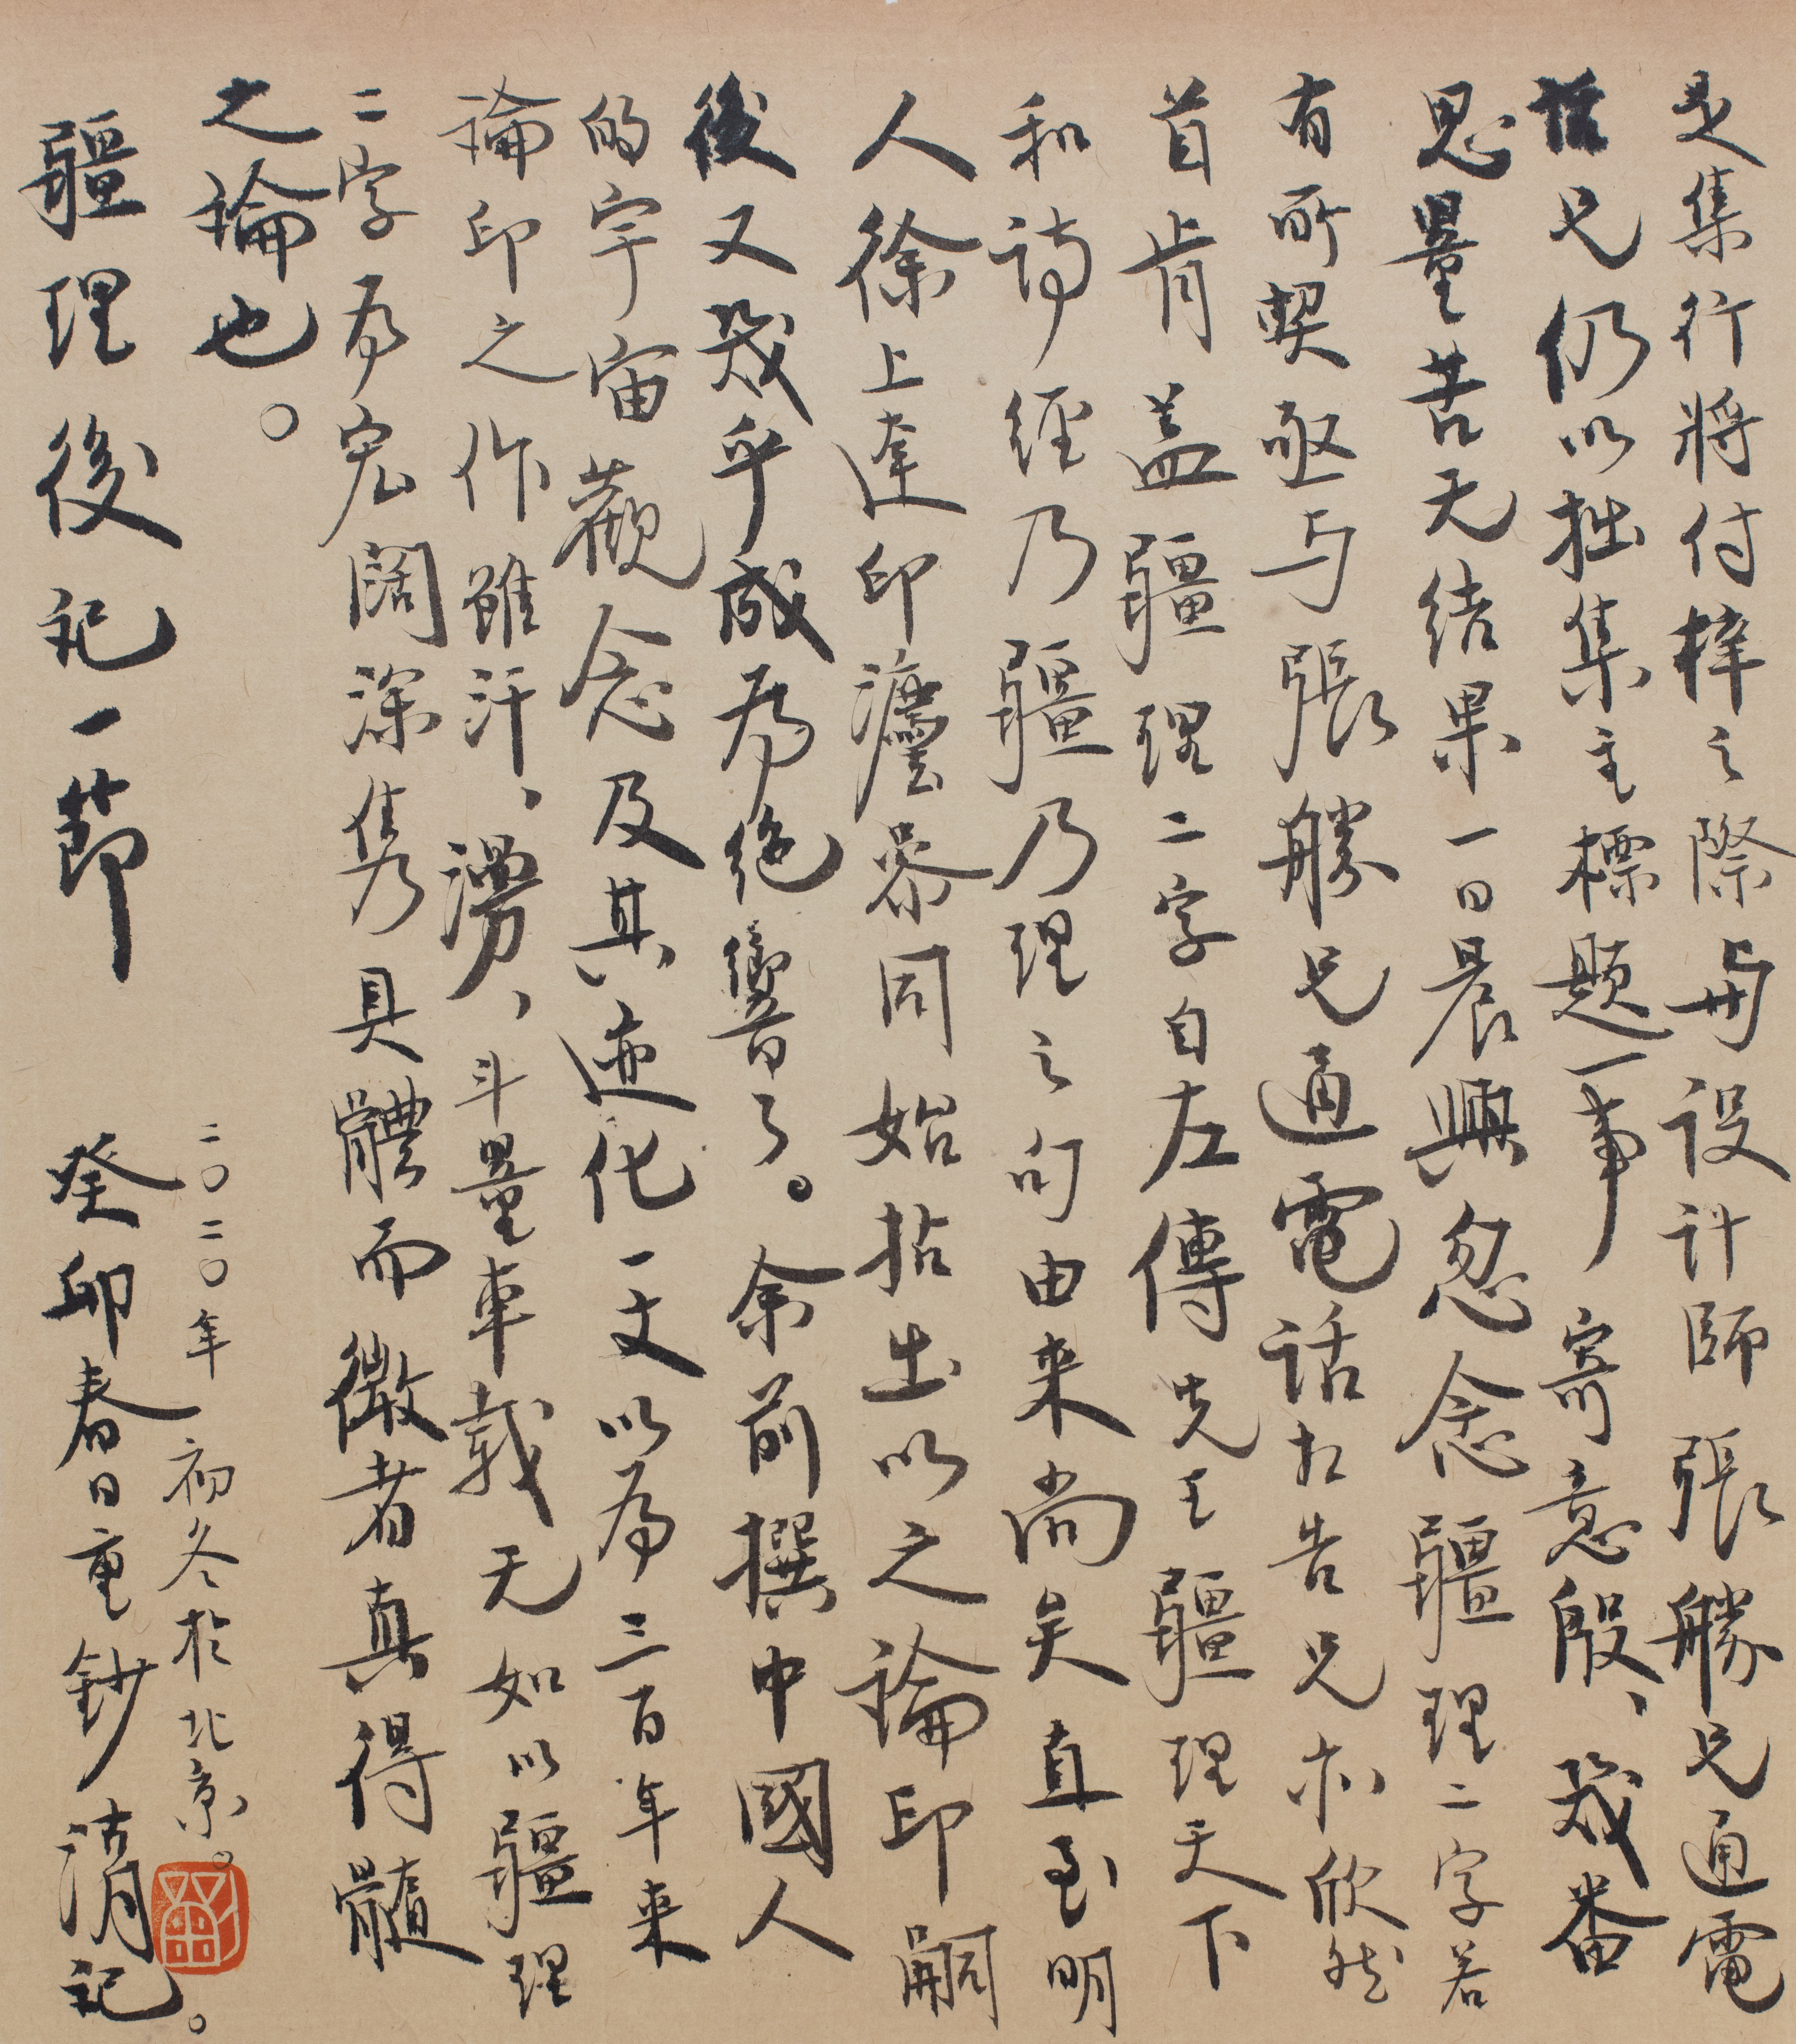 是集行將付梓之際与设计師張勝兄通電
話兄仍以拙集主標題一事寄意殷、幾番
思量苦无结果一日晨興忽念疆理二字若
有所契亟与張勝兄通電話相告兄亦欣然
首肯蓋疆理二字自左傳先王疆理天下
和詩經乃疆乃理之句由来尚矣直至明
人徐上達印灋叅同始拈出以之論印嗣
後又幾乎成為绝響了。余前撰中國人
的宇宙觀念及其迹化一文以為三百年来
論印之作雖汗、漫、斗量車载无如以疆理
二字为宏闊深隽具體而微者真得髓
之論也。
二〇二〇年初冬於北京。
疆理後记一節
癸卯春日重鈔 清记。